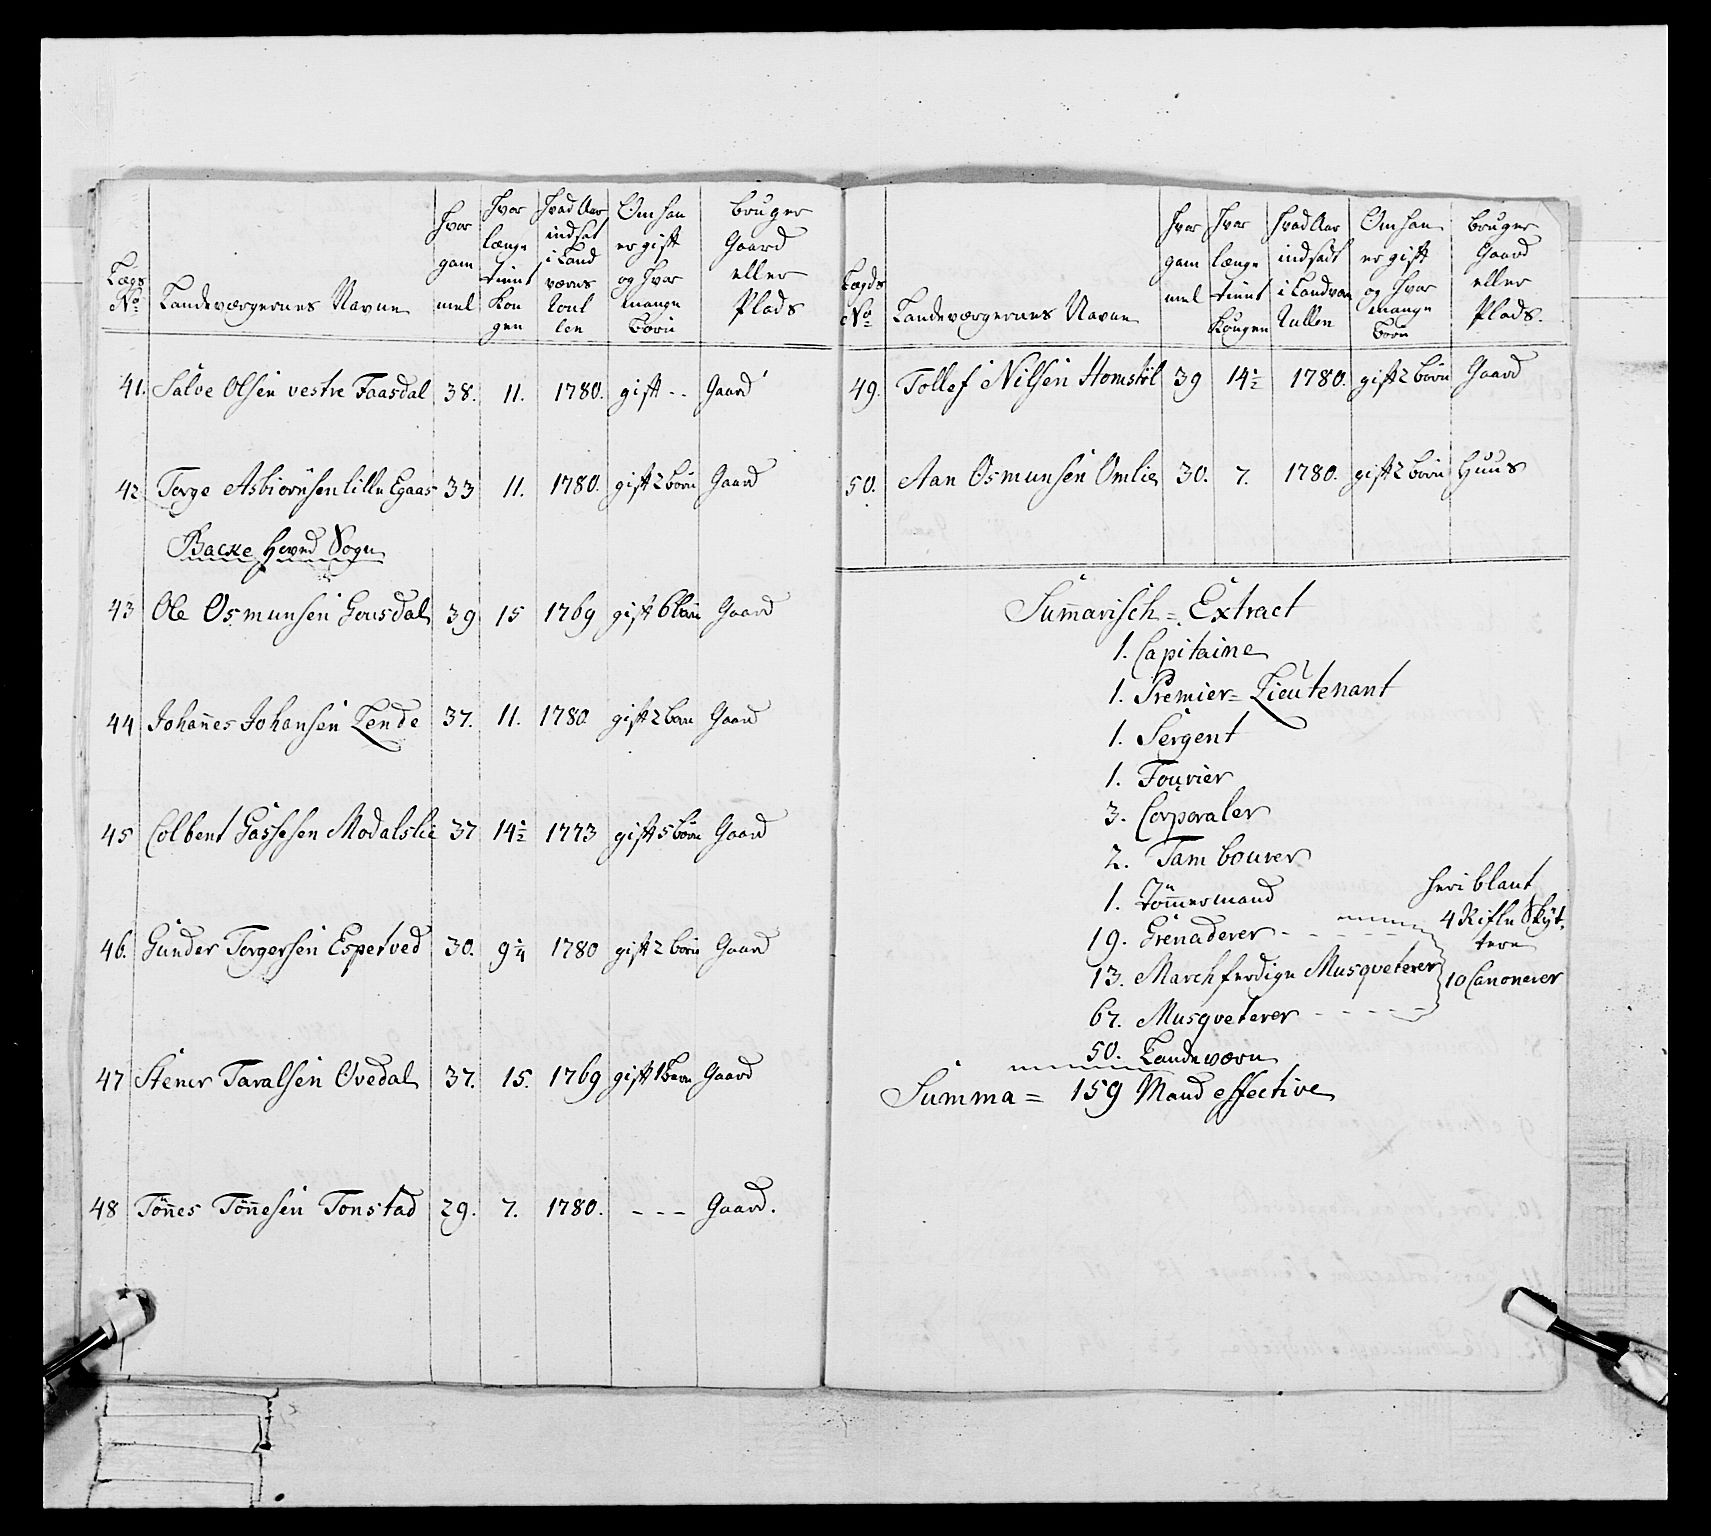 Lægs No | Landeværgernes Navne | Hvor gam mel | Hvor længe tient Kon gen | Hvad Aar indsat i Land værns Roul len | Om han er gift og hvor mange Børn | bruger Gaard eller Plads
41. Salve Olsen vestre Faasdal | 38. | 11. | 1780. | gift - - | Gaard
42 Torge Asbiørnsen lille Egaas | 33 | 11. | 1780. | gift 2 børn | Gaard
Backe Hoved Sogn
43 Ole Osmunsen Gousdal | 39 | 15 | 1769 | gift 6 børn | Gaard
44 Johannes Johansen Lende | 37. | 11. | 1780 | gift 2 børn | Gaard
45 Colbent Gassesen Modalslie | 37 | 14½ | 1773 | gift 5 børn | Gaard
46. Gunder Torgersen Espetved | 30. | 9¼ | 1780 | gift 2 børn | Gaard
47 Stener Taralsen Ovedal | 37. | 15. | 1769 | gift 1 barn | Gaard
48 Tönnes Tönnesen Tonstad | 29. | 7. | 1780. | - - - | Gaard.
Lægds No | Landeværgernes Navne | Hvor gam mel | Hvor længe tient Kongen | Hvad Aar indsadt i Landværn Rullen | Om han er gift og hvor mange Børn | bruger Gaard eller Plads.
49. Tollef Nilsen Homstöl | 39 | 14½ | 1780. | gift 2 børn | Gaard
50. Aan Osmunsen Omlie | 30. | 7. | 1780. | gift 2 børn | Huus
Summarisch = Extract
1. Capitaine
1. Premier = Lieutenant
1. Sergent
1. Fourier
3. Corporaler
2. Tambourer
1. Tömmermand
19. Grenaderer - - - -
13. Marchferdige Musqveterer
67. Musqveterer - - - -
heriblant
4 Rifle Skyt-
tere
10 Canonerer
50. Landeværn
Summa = 159 Mand effective